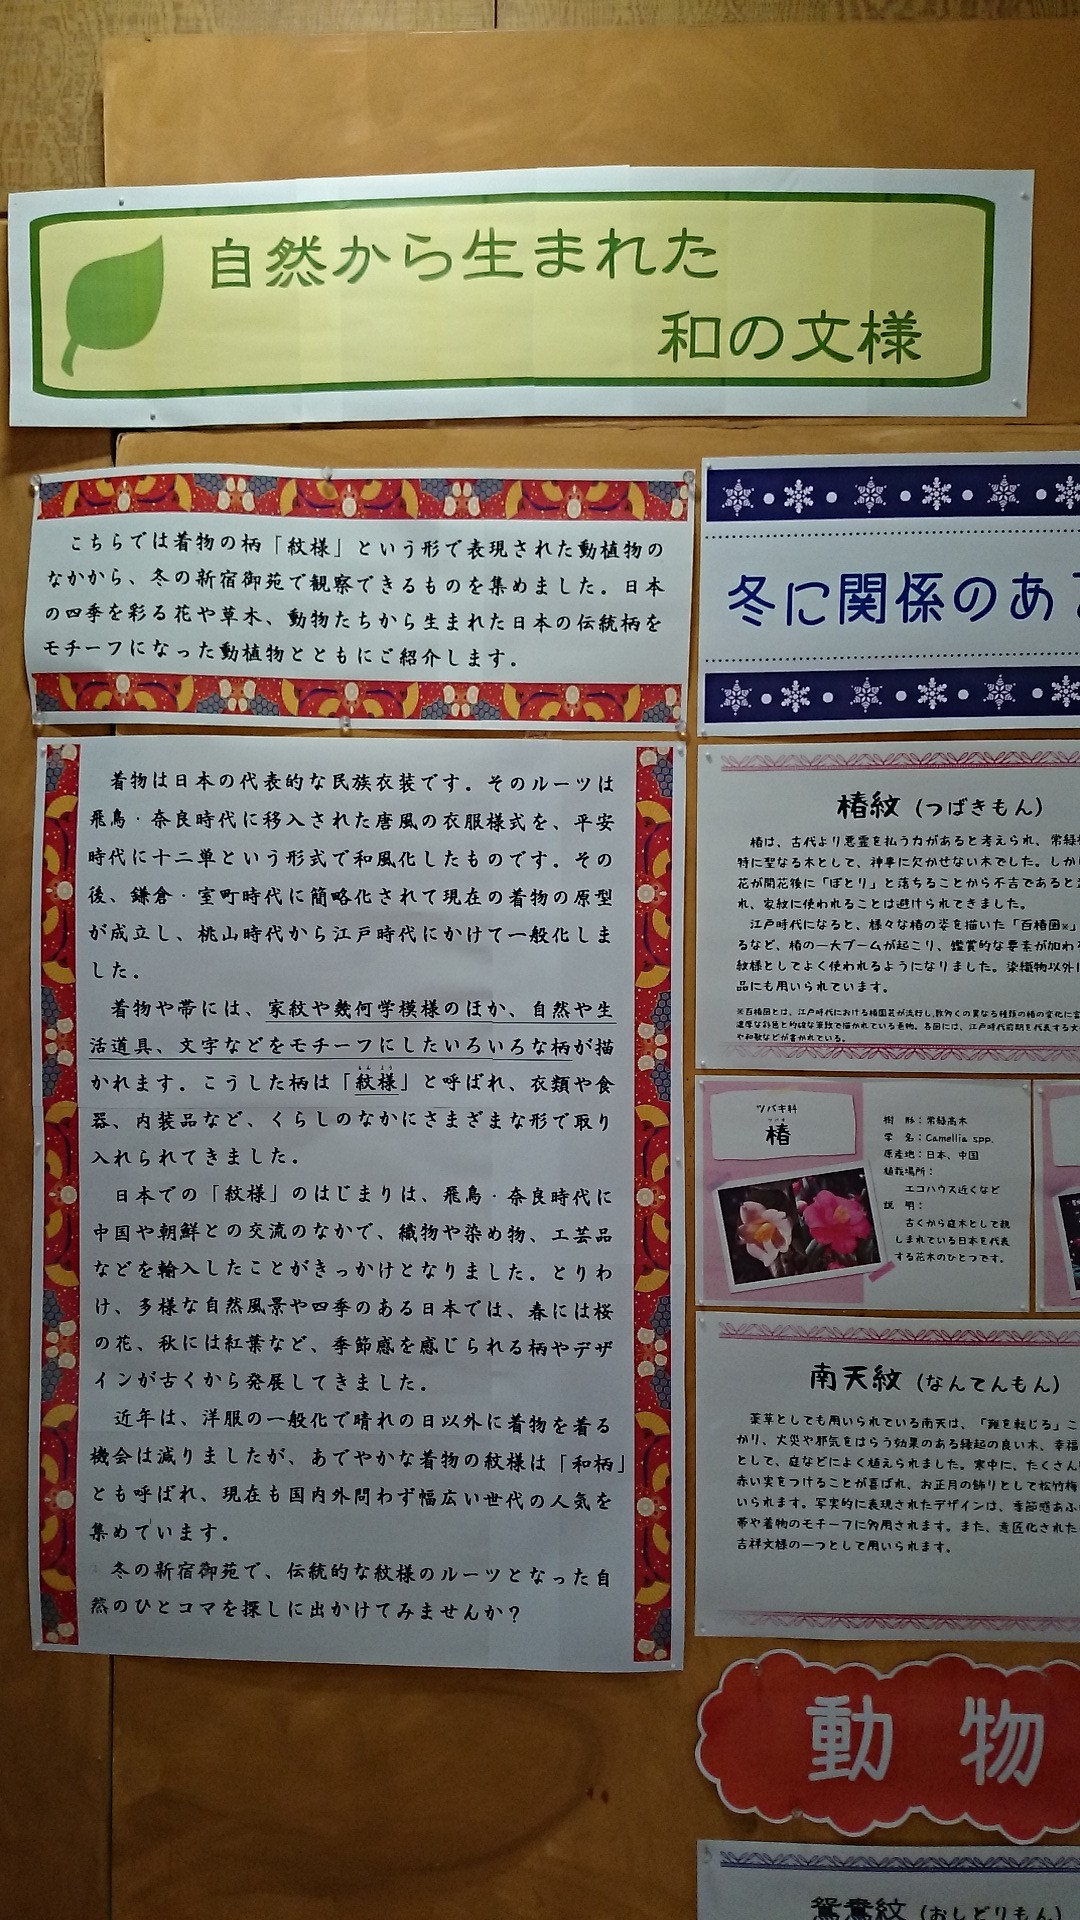 自然から生まれた
和の文様
こちらでは着物の柄「紋様」という形で表現された動植物の
なかから、冬の新宿御苑で観察できるものを集めました。日本
の四季を彩る花や草木、動物たちから生まれた日本の伝統柄を
モチーフになった動植物とともにご紹介します。
着物は日本の代表的な民族衣装です。そのルーツは
飛鳥・奈良時代に移入された唐風の衣服様式を、平安
時代に十二単という形式で和風化したものです。その
後、鎌倉・室町時代に簡略化されて現在の着物の原型
が成立し、桃山時代から江戸時代にかけて一般化しま
した。
着物や帯には、家紋や幾何学模様のほか、自然や生
活道具、文字などをモチーフにしたいろいろな柄が描
かれます。こうした柄は「紋様」と呼ばれ、衣類や食
器、内装品など、くらしのなかにさまざまな形で取り
入れられてきました。
日本での「紋様」のはじまりは、飛鳥・奈良時代に
中国や朝鮮との交流のなかで、織物や染め物、工芸品
などを輸入したことがきっかけとなりました。とりわ
け、多様な自然風景や四季のある日本では、春には桜
の花、秋には紅葉など、季節感を感じられる柄やデザ
インが古くから発展してきました。
近年は、洋服の一般化で晴れの日以外に着物を着る
機会は減りましたが、あでやかな着物の紋様は「和柄」
とも呼ばれ、現在も国内外問わず幅広い世代の人気を
集めています。
冬の新宿御苑で、伝統的な紋様のルーツとなった自
然のひとコマを探しに出かけてみませんか？
冬に関係のある
椿紋（つばきもん）
椿は、古代より悪霊を払う力があると考えられ、常緑
特に聖なる木として、神事に欠かせない木でした。しか
花が開花後に「ぽとり」と落ちることから不吉であると
れ、家紋に使われることは避けられてきました。
江戸時代になると、様々な椿の姿を描いた「百椿図※」
るなど、椿の一大ブームが起こり、鑑賞的な要素が加わ
紋様としてよく使われるようになりました。染織物以外
品にも用いられています。
※百椿図とは、江戸時代における椿園芸が流行し、数多くの異なる種類の椿の変化に
濃厚な彩色と的確な筆致で描かれている巻物。各図には、江戸時代前期を代表する文
や和歌などが書かれている。
ツバキ科
椿
樹　形：常緑高木
学　名：Camellia spp.
原産地：日本、中国
植栽場所：
エコハウス近くなど
説　明：
古くから庭木として親
しまれている日本を代表
する花木のひとつです。
南天紋（なんてんもん）
薬草としても用いられている南天は、「難を転じる」こ
がり、火災や邪気をはらう効果のある縁起の良い木、幸福
として、庭などによく植えられました。寒中に、たくさん
赤い実をつけることが喜ばれ、お正月の飾りとして松竹梅
いられます。写実的に表現されたデザインは、季節感あふ
帯や着物のモチーフに多用されます。また、意匠化された
吉祥文様の一つとして用いられます。
動物
鴛鴦紋（おしどりもん）